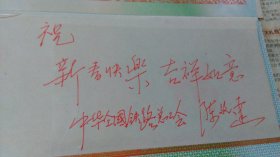 祝
新春快樂 吉祥如意
中华全国铁路总工会 陈